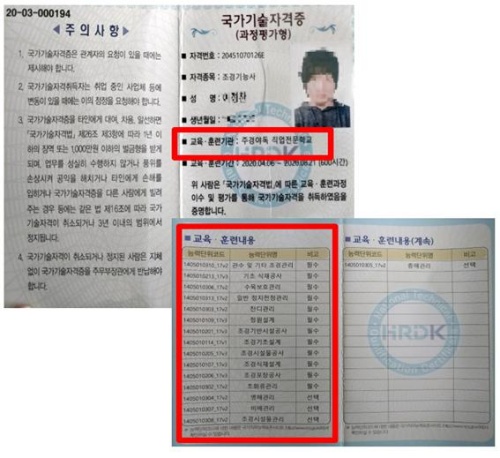 20-03-000194
◀ 주의사항 ▶
1. 국가기술자격증은 관계자의 요청이 있을 때에는
제시해야 합니다.
2. 국가기술자격취득자는 취업 중인 사업체 등에
변동이 있을 때에는 이의 정정을 요청해야 합니다.
3. 국가기술자격증을 타인에게 대여, 차용, 알선하면
「국가기술자격법」 제26조 제3항에 따라 1년 이
하의 징역 또는 1,000만원 이하의 벌금형을 받게
되며, 업무를 성실히 수행하지 않거나 품위를
손상시켜 공익을 해치거나 타인에게 손해를
입히거나 국가기술자격증을 다른 사람에게 빌려
주는 경우 등에는 같은 법 제16조에 따라 국가
기술자격이 취소되거나 3년 이내의 범위에서
정지됩니다.
4. 국가기술자격이 취소되거나 정지된 사람은 지체
없이 국가기술자격증을 주무부장관에게 반납해야
합니다.
국가기술자격증
(과정평가형)
■ 자격번호 : 20451070126E
■ 자격종목 : 조경기능사
■ 성 명 : 이정환
■ 생년월일 :
■ 교육·훈련기관 : 주경야독 직업전문학교
■ 교육·훈련기간 : 2020.04.06 ~ 2020.08.21 (600시간)
위 사람은 「국가기술자격법」에 따른 교육·훈련과정
이수 및 평가를 통해 국가기술자격을 취득하였음을
증명합니다.
HRDK
■ 교육·훈련내용
능력단위코드 능력단위명 비고
1405010310_17v2 관수 및 기타 조경관리 필수
1405010316_17v3 기초 식재공사 필수
1405010306_17v2 수목보호관리 필수
1405010315_17v2 일반 정지전정관리 필수
1405010303_17v2 잔디관리 필수
1405010109_17v3 정원설계 필수
1405010201_17v3 조경기반시설공사 필수
1405010114_17v1 조경기초설계 필수
1405010205_17v2 조경시설물공사 필수
1405010107_17v3 조경식재설계 필수
1405010206_17v2 조경포장공사 필수
1405010302_17v2 초화류관리 필수
1405010304_17v2 병해관리 선택
1405010307_17v2 비배관리 선택
1405010308_17v2 조경시설물관리 선택
■ 교육·훈련내용(계속)
능력단위코드 능력단위명 비고
1405010305_17v2 충해관리 선택
HRDK